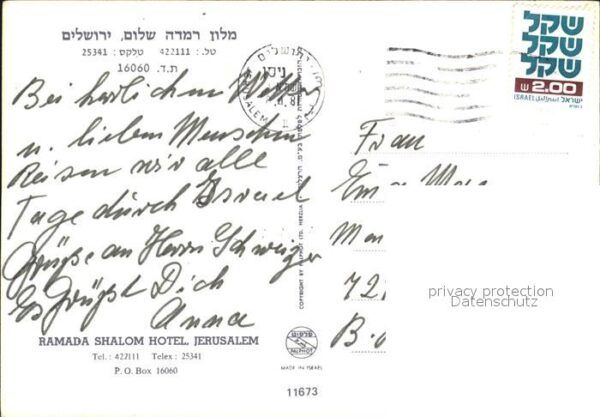 מלון רמדה שלום, ירושלים
טל.: 422111 טלקס: 25341
ת.ד. 16060
Bei herlichem Wetter
u. lieben Menschen
Reisen wir alle
Tage durch Israel
Grüße an Herrn Schweiger
Es Grüßt Dich
Anna
RAMADA SHALOM HOTEL, JERUSALEM
Tel.: 422111 Telex: 25341
P. O. Box 16060
ירושלים
JERUSALEM
COPYRIGHT BY PALPHOT LTD. HERZLIA
פלפוט
PALPHOT
MADE IN ISRAEL
11673
שקל
שקל
שקל
2.00
ISRAEL اسرائيل ישראל
Frau
72
B.
privacy protection
Datenschutz